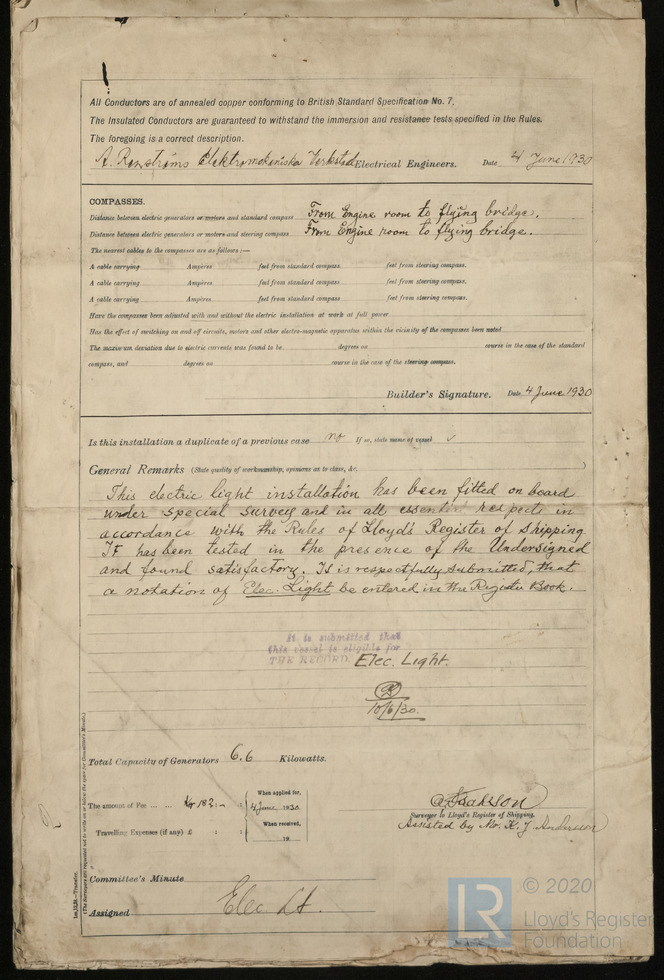 All Conductors are of annealed copper conforming to British Standard Specification No. 7.
The Insulated Conductors are guaranteed to withstand the immersion and resistance tests specified in the Rules.
The foregoing is a correct description.
Elektromekaniska Verkstad Electrical Engineers. Date 4 June 1930
COMPASSES.
Distance between electric generators or motors and standard compass From Engine room to flying bridge.
Distance between electric generators or motors and steering compass From Engine room to flying bridge.
The nearest cables to the compasses are as follows:—
A cable carrying Ampères feet from standard compass feet from steering compass.
A cable carrying Ampères feet from standard compass feet from steering compass.
A cable carrying Ampères feet from standard compass feet from steering compass.
Have the compasses been adjusted with and without the electric installation at work at full power
Has the effect of switching on and off circuits, motors and other electro-magnetic apparatus within the vicinity of the compasses been noted
The maximum deviation due to electric currents was found to be degrees on course in the case of the standard
compass, and degrees on course in the case of the steering compass.
Builder's Signature. Date 4 June 1930
Is this installation a duplicate of a previous case no If so, state name of vessel ✓
General Remarks (State quality of workmanship, opinions as to class, &c.
This electric light installation has been fitted on board
under special survey and in all essential respects in
accordance with the Rules of Lloyd's Register of Shipping
It has been tested in the presence of the Undersigned
and found satisfactory. It is respectfully submitted, that
a notation of Elec. Light be entered in the Register Book.
It is submitted that
this vessel is eligible for
THE RECORD. Elec. Light.
10/6/30.
Total Capacity of Generators 6.6 Kilowatts.
The amount of Fee ... ... Kr 182:- : : When applied for, 4 June 1930
Travelling Expenses (if any) £ : : When received, 19
Surveyor to Lloyd's Register of Shipping.
Assisted by Mr. K. J. Andersson
Committee's Minute
Assigned Elec Lt.
1m,11,28.—Transfer.
(The Surveyors are requested not to write on or below the space for Committee's Minute.)
LR © 2020
Lloyd's Register
Foundation